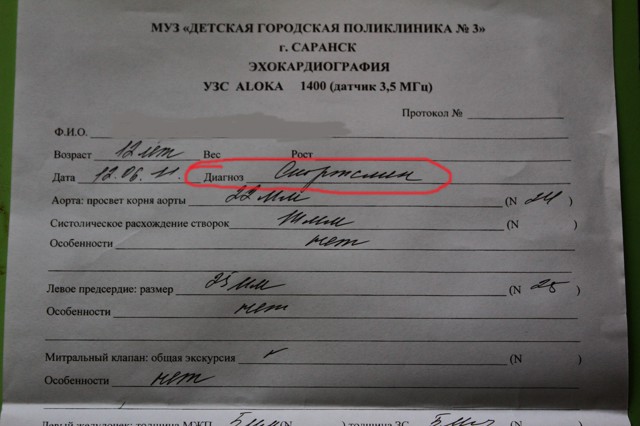 МУЗ «ДЕТСКАЯ ГОРОДСКАЯ ПОЛИКЛИНИКА № 3»
г. САРАНСК
ЭХОКАРДИОГРАФИЯ
УЗС ALOKA 1400 (датчик 3,5 МГц)
Протокол №
Ф.И.О.
Возраст 12 лет Вес Рост
Дата 12.06.11. Диагноз Спортсмен
Аорта: просвет корня аорты 22 мм (N 24 )
Систолическое расхождение створок мм (N )
Особенности нет
Левое предсердие: размер 25 мм (N 25 )
Особенности нет
Митральный клапан: общая экскурсия (N )
Особенности нет
Левый желудочек: толщина МЖП 5 мм (N ) толщина ЗС 5 мм (N